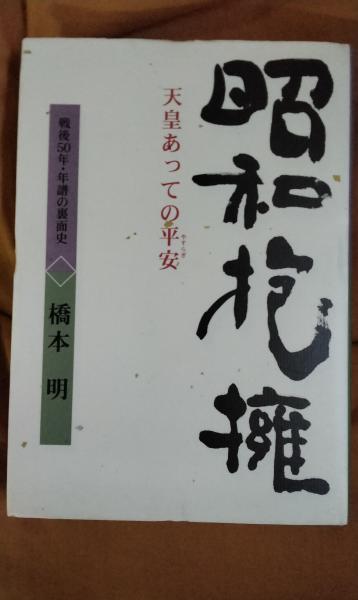 昭和抱擁
天皇あっての平安
やすらぎ
戦後50年・年譜の裏面史
橋本 明